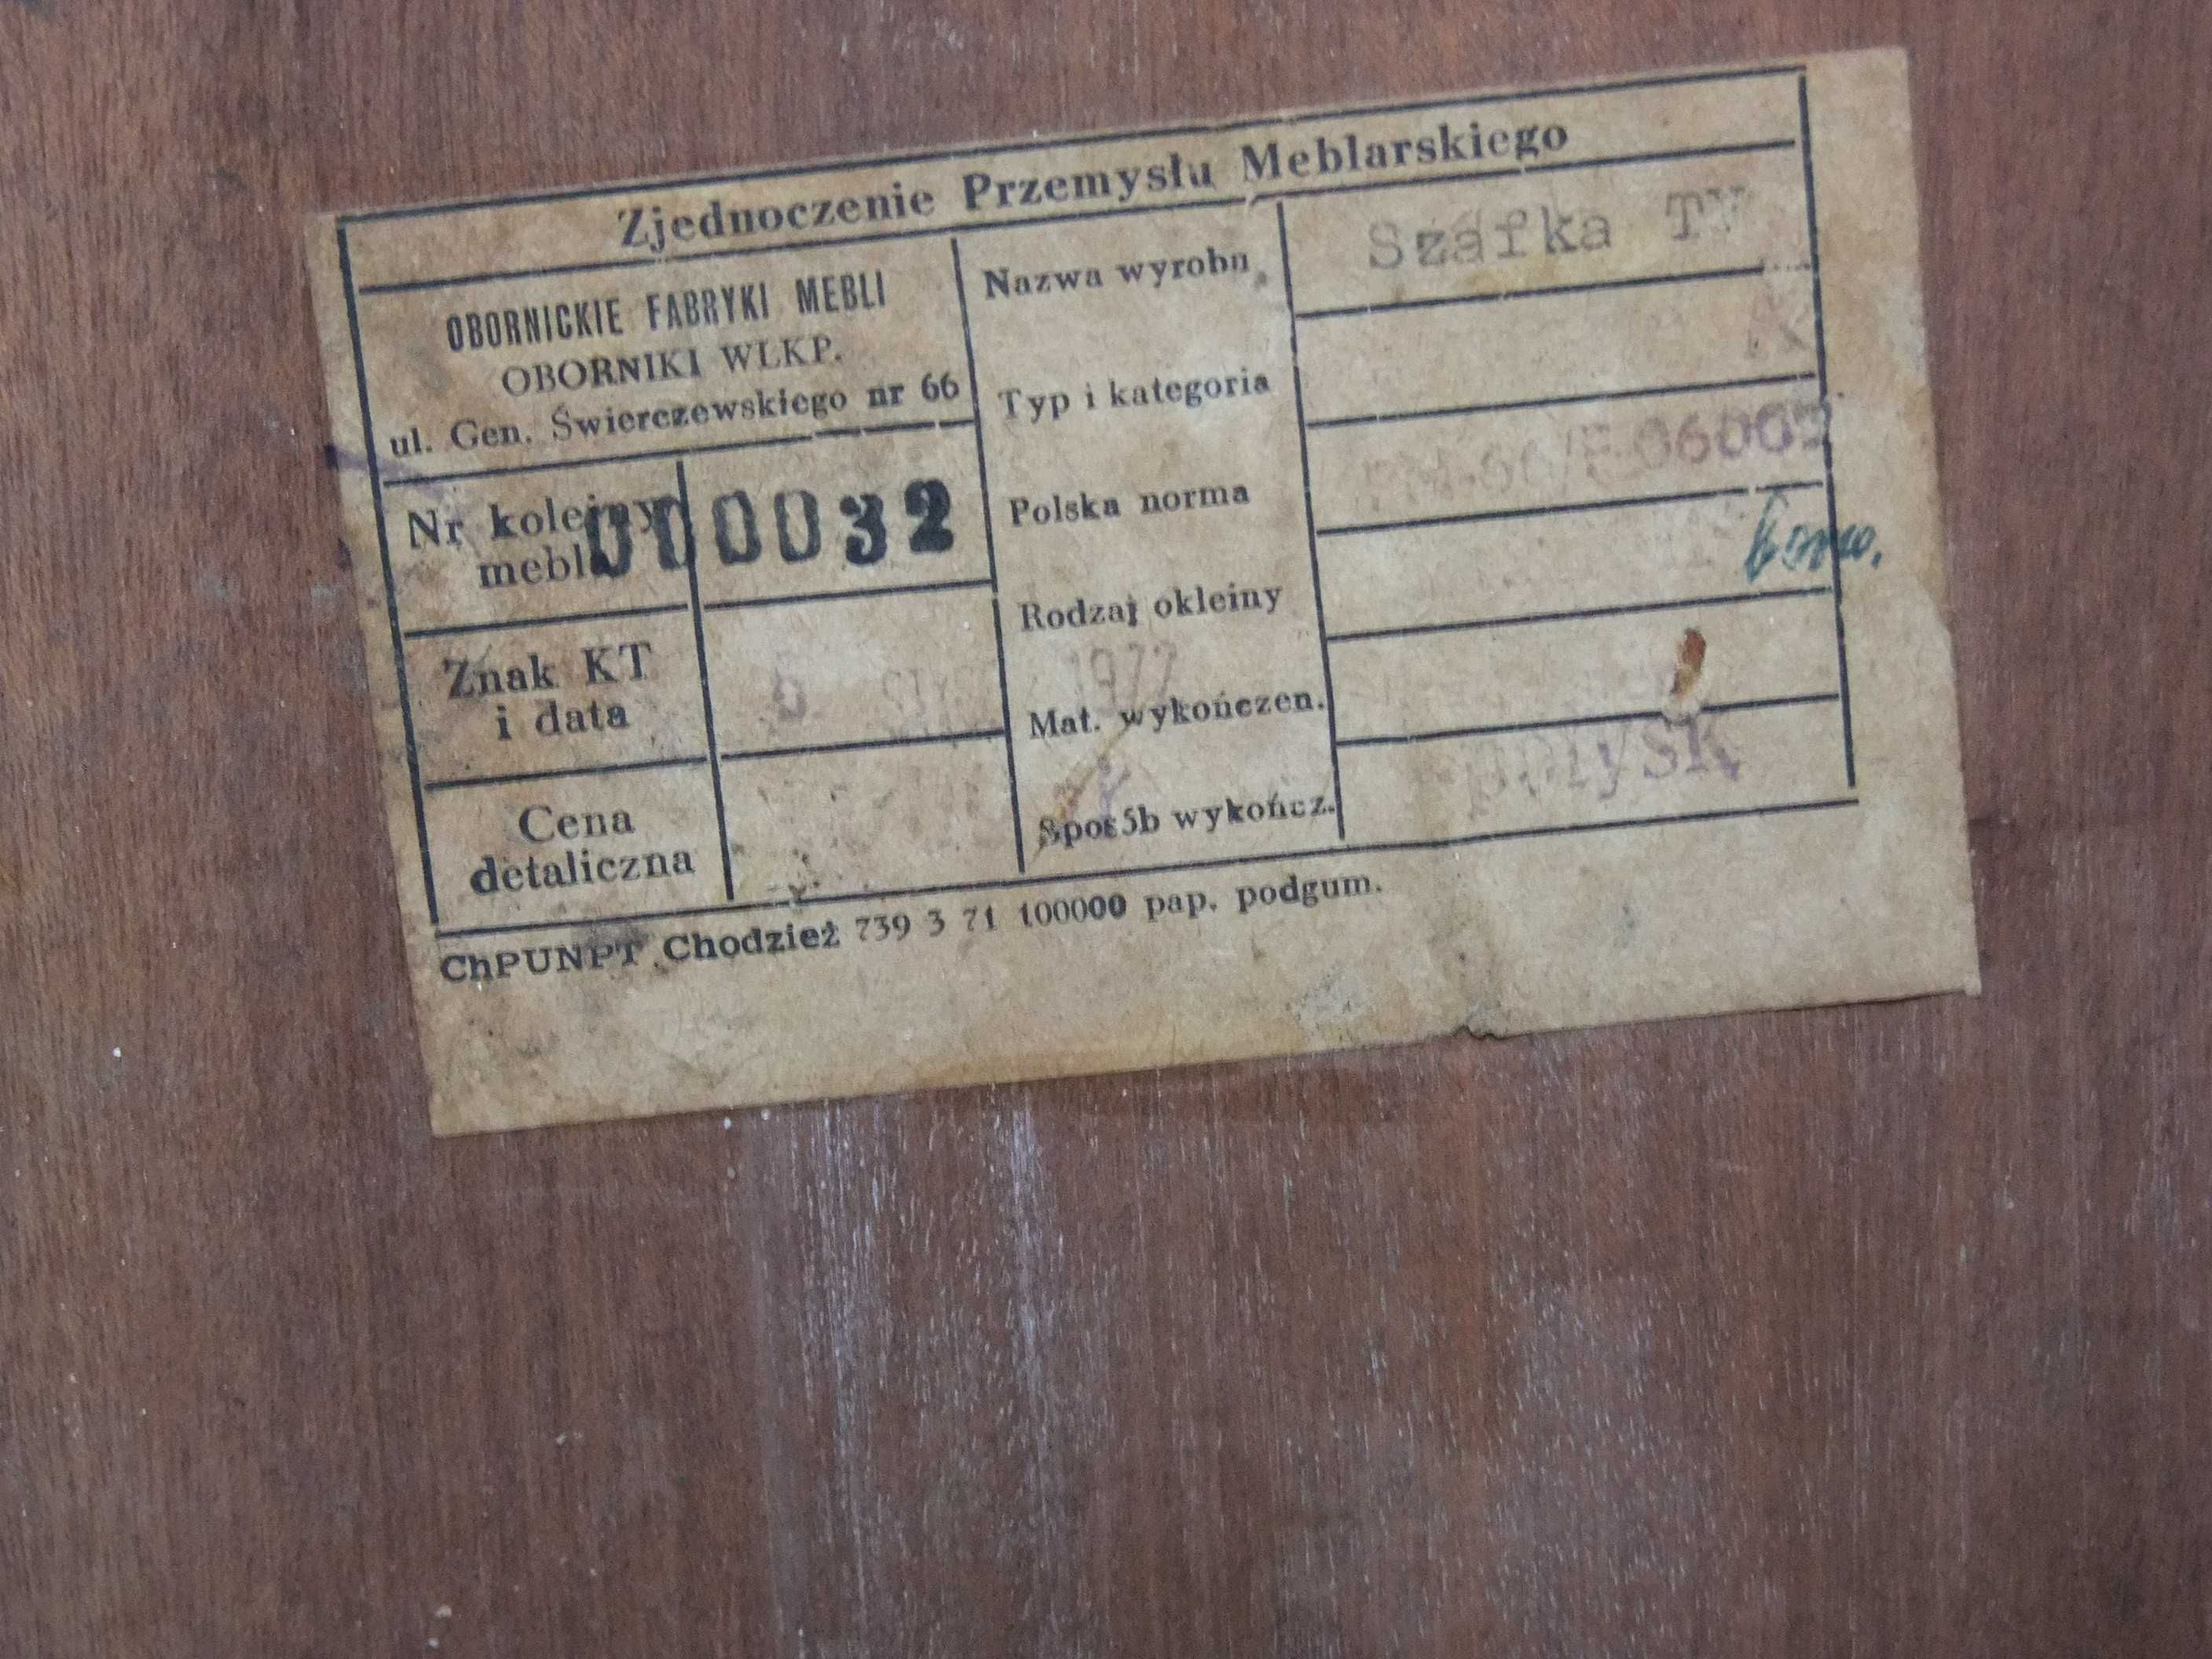 Zjednoczenie Przemysłu Meblarskiego
OBORNICKIE FABRYKI MEBLI
OBORNIKI WLKP.
ul. Gen. Świerczewskiego nr 66
Nr kolejny mebla
000032
Znak KT
i data
6 1977
Cena
detaliczna
Nazwa wyrobu
Szafka TV
Typ i kategoria
Polska norma
06002
Rodzaj okleiny
Mat. wykończen.
Sposób wykończ.
połysk
ChPUNPT Chodzież 739 3 71 100000 pap. podgum.